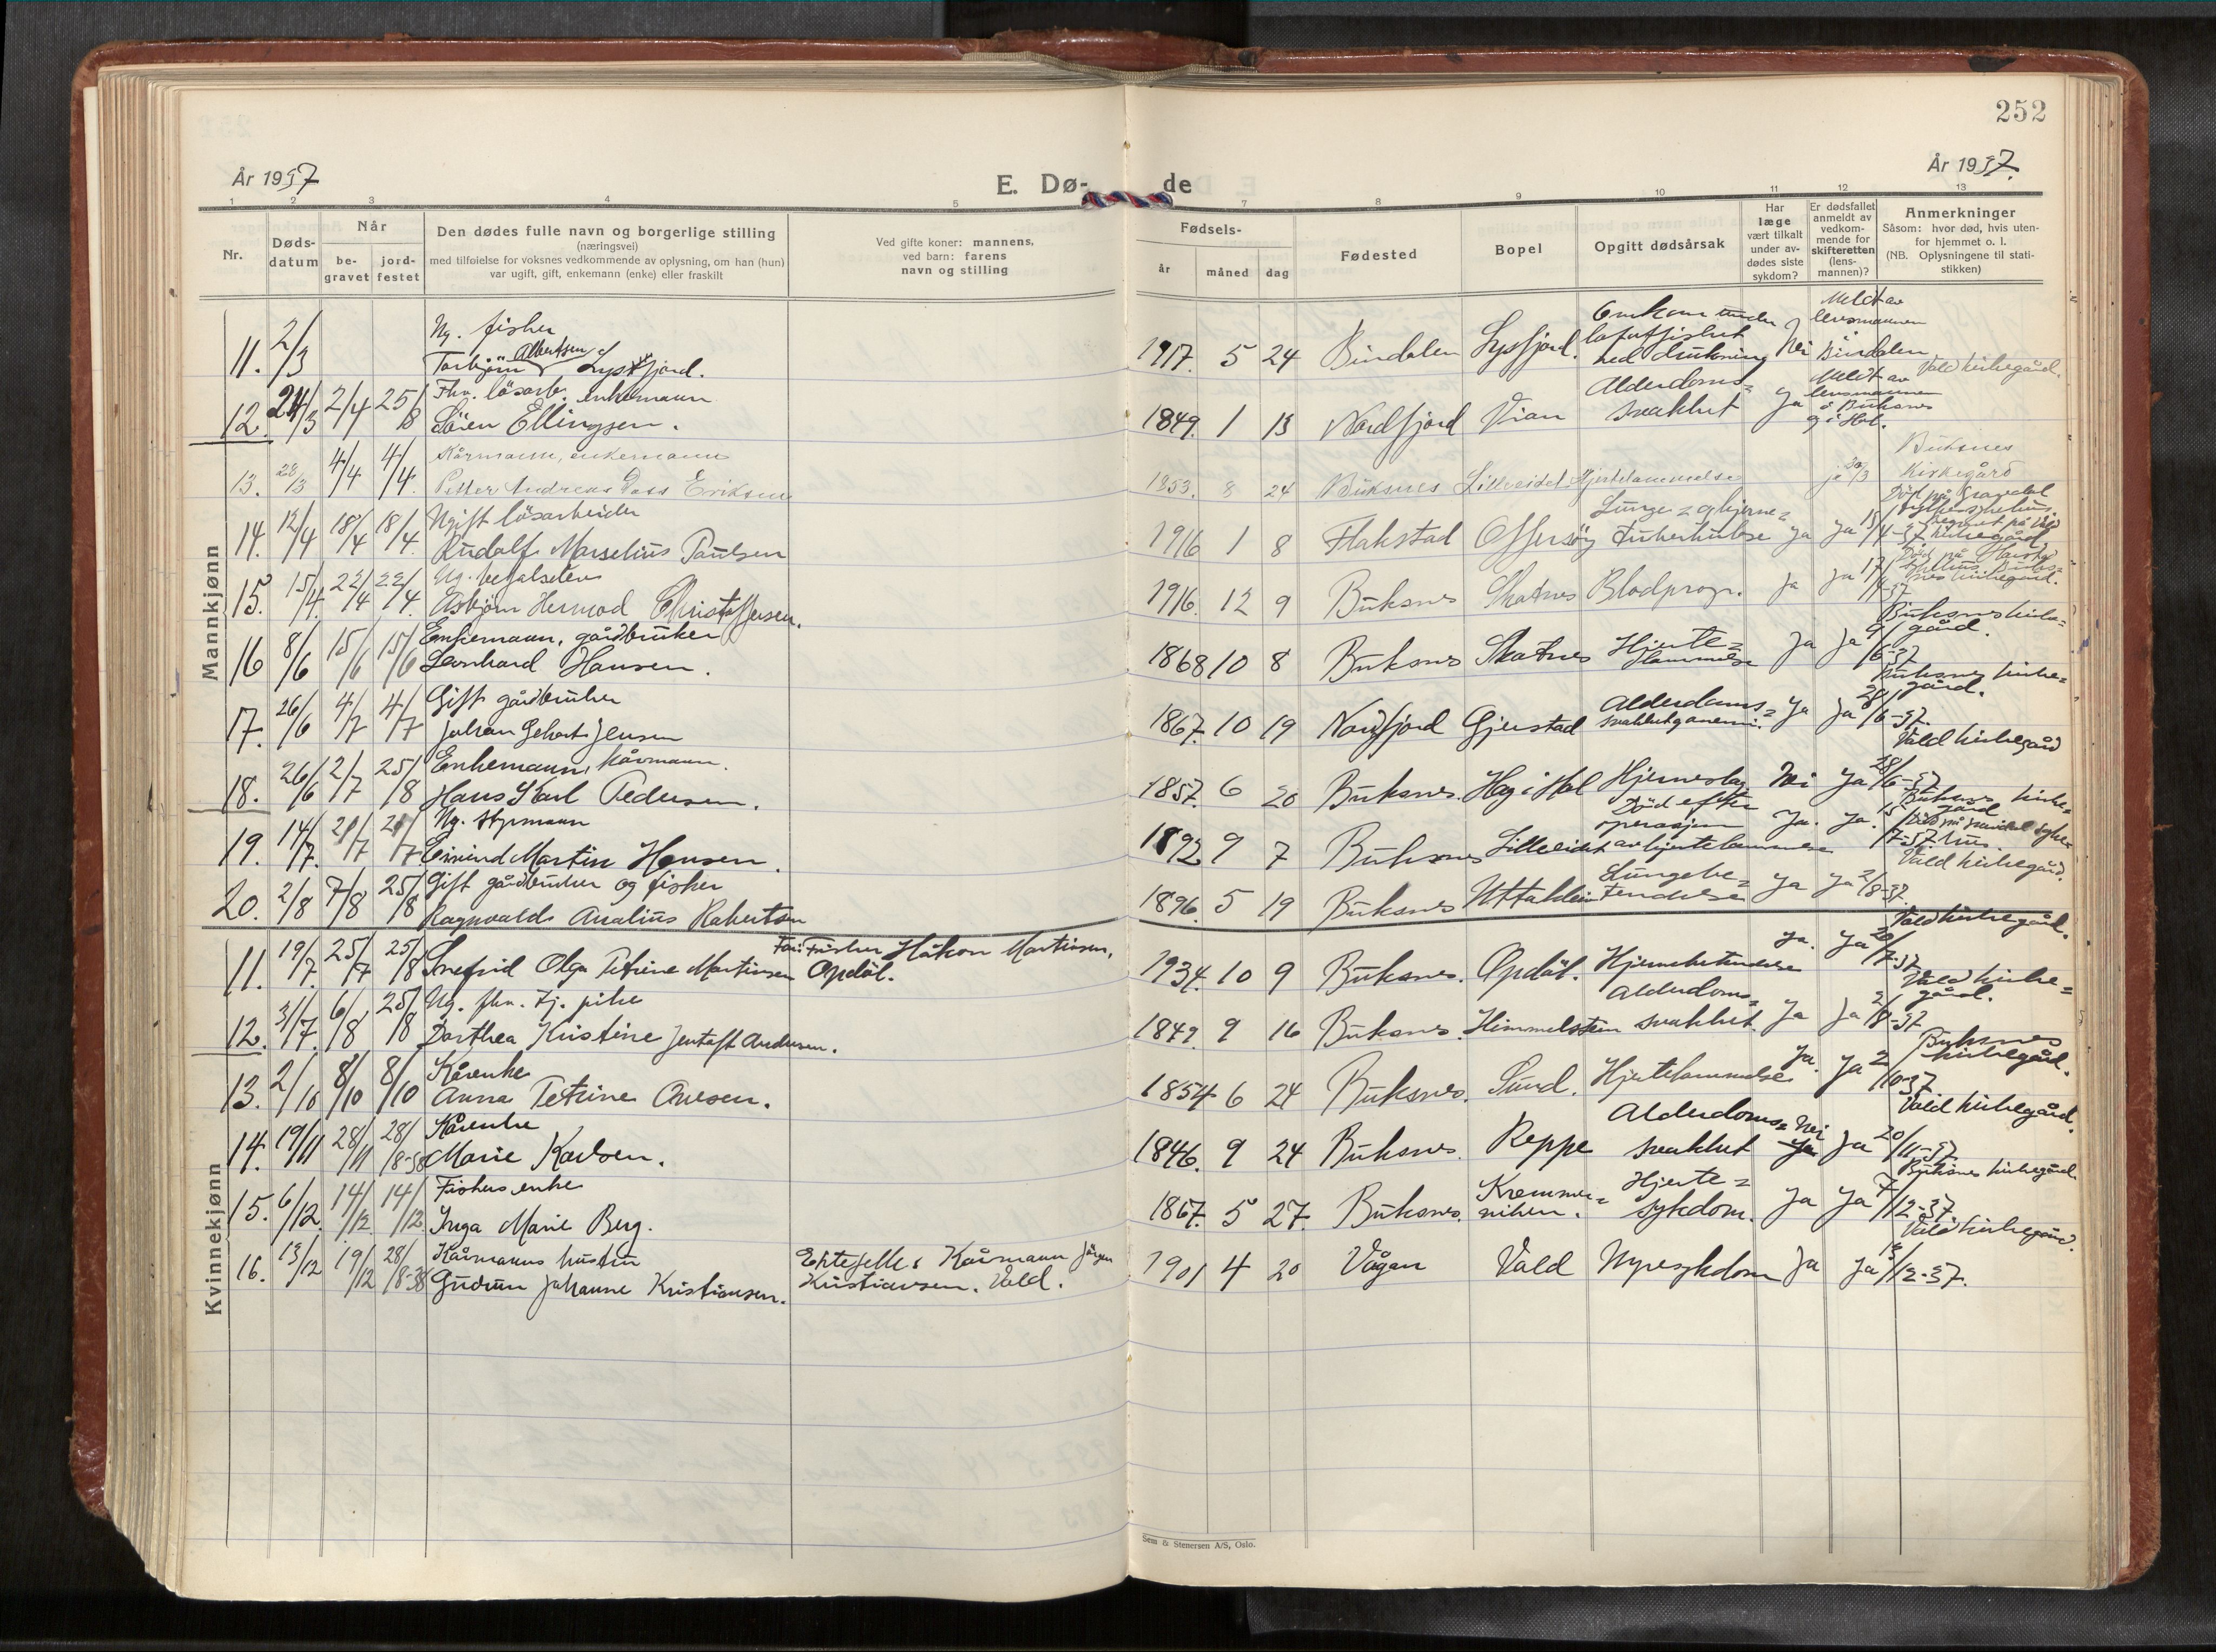 252
År 1937
År 1937.
E. Dø-
de
1 2 3 4 5 7 8 9 10 11 12 13
Nr.
Døds-
datum
Når
be-
gravet
jord-
festet
Den dødes fulle navn og borgerlige stilling
(næringsvei)
med tilføielse for voksnes vedkommende av oplysning, om han (hun)
var ugift, gift, enkemann (enke) eller fraskilt
Ved gifte koner: mannens,
ved barn: farens
navn og stilling
Fødsels-
år
måned
dag
Fødested
Bopel
Opgitt dødsårsak
Har
læge
vært tilkalt
under av-
dødes siste
sykdom?
Er dødsfallet
anmeldt av
vedkom-
mende for
skifteretten
(lens-
mannen)?
Anmerkninger
Såsom: hvor død, hvis uten-
for hjemmet o. l.
(NB. Oplysningene til stati-
stikken)
Mannkjønn
Ug. fisker
11. 2/3 Torbjörn Albertsen 1917. 5 24 Bindalen Nei Bindalen Vold kirkegård.
Meldt av
lensmannen
Fhv. lösarb. enkemann
12. 24/3 2/4 25/8 Sören Ellingsen. 1849. 1 13 Nordfjord Vian Alderdoms= svakhet Ja
Meldt av
lensmannen
i Buksnes
og i Hol.
Kårmann, enkemann
13. 28/3 4/4 4/4. Petter Andreas Dass Eriksen 1853. 8 24 Buksnes Lilleeidet Hjertelammelse ja 30/3 Buksnes
Kirkegård
Ugift lösarbeider
14. 12/4 18/4 18/4. Rudolf Marselius Paulsen 1916 1 8 Flakstad Offersöy Lunge= og hjerne= tuberkulose ja ja 15/4-37
Død på Gravdal
15. 15/4. 22/4 22/4. Asbjörn Hermod Christoffersen. 1916. 12 9 Buksnes Skotnes Blodpropp. ja ja 17/4-37
Enkemann, gårdbruker
16 8/6 15/6 15/6 Leonhard Hansen. 1868 10 8 Buksnes Skotnes Hjerte= lammelse Ja Ja 9/6-37 Buksnes kirke=
gård.
Gift gårdbruker
17. 26/6 4/7 4/7 Johan Gehart Jensen 1867. 10 19 Nordfjord Gjerstad Alderdoms= Ja Ja 28/6-37. Buksnes kirke=
gård.
Enkemann, Kårmann.
18. 26/6 2/7 25/8 Hans Karl Pedersen. 1857. 6 20 Buksnes. Hag i Hol Hjerneslag Nei Ja 28/6-37 Vold kirkegård
Ug. styrmann
19. 14/7. 21/7 21/7 Eivind Martin Hansen. 1892 9 7 Buksnes Lilleeidet Död efter
operasjon
av hjertelammelse Ja. Ja. 15/7-37 Buksnes kirke=
gård
Gift gårdbruker og fisker
20. 2/8 7/8 25/8 Ragnvald Analius Robertsen 1896. 5 19 Buksnes Uttakleiv Lungebe=
tendelse Ja Ja 2/8-37. Vold kirkegård.
Kvinnekjønn
11. 19/7. 25/7 25/8 Snefrid Olga Petrine Martinsen Far: Fisker Håkon Martinsen,
Opdöl. 1934. 10 9 Buksnes. Opdöl. Hjernebetendelse Ja. Ja 20/7-37 Vold kirkegård.
Ug. fhv. tj. pike
12. 31/7. 6/8 25/8 Dorthea Kristine Jentoft Andersen. 1849. 9 16 Buksnes. Himmelstein Alderdoms=
svakhet Ja Ja 2/8-37 Vold kirke=
gård.
Kårenke
13. 2/10 8/10 8/10 Anna Petrine Olsen. 1854 6 24 Buksnes. Sund. Hjertelammelse Ja. Ja 2/10-37 Buksnes
kirkegård.
Kårenke
14. 19/11 28/11 28/8-38 Marie Karlsen. 1846. 9 24 Buksnes. Reppe Alderdoms=
svakhet Nei Ja 20/11-37 Vold kirkegård.
Fiskers enke
15. 6/12. 14/12 14/12. Inga Marie Berg. 1867. 5 27. Buksnes. Kremmer=
viken. Hjerte=
sykdom. Ja Ja 7/12-37. Buksnes kirkegård
Kårmanns hustru
16. 13/12 19/12 28/8-38 Gudrun Johanne Kristiansen. Ektefelle: Kårmann Jörgen
Kristiansen. Vold. 1901 4 20 Vågan Vold Nyresykdom Ja Ja 18/12-37. Vold kirkegård.
Sem & Stenersen A/S, Oslo.